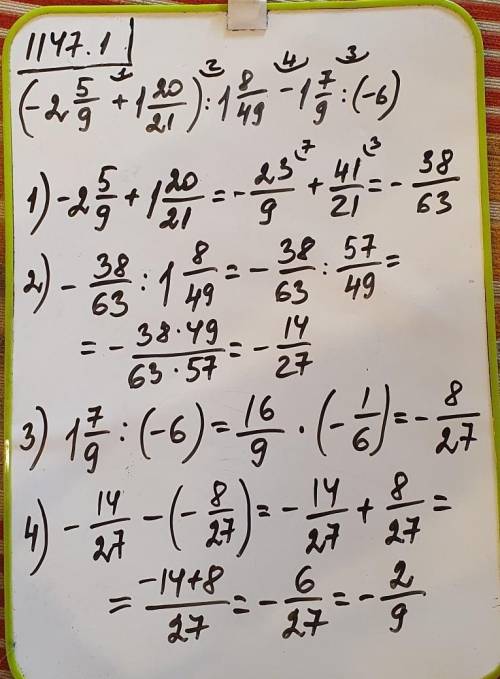 1147.1
(-2 5/9 + 1 20/21) : 1 8/49 - 1 7/9 : (-6)
1) -2 5/9 + 1 20/21 = - 23/9 + 41/21 = - 38/63
2) - 38/63 : 1 8/49 = - 38/63 : 57/49 =
= - 38·49/63·57 = - 14/27
3) 1 7/9 : (-6) = 16/9 · (- 1/6) = - 8/27
4) - 14/27 - (- 8/27) = - 14/27 + 8/27 =
= -14+8/27 = - 6/27 = - 2/9